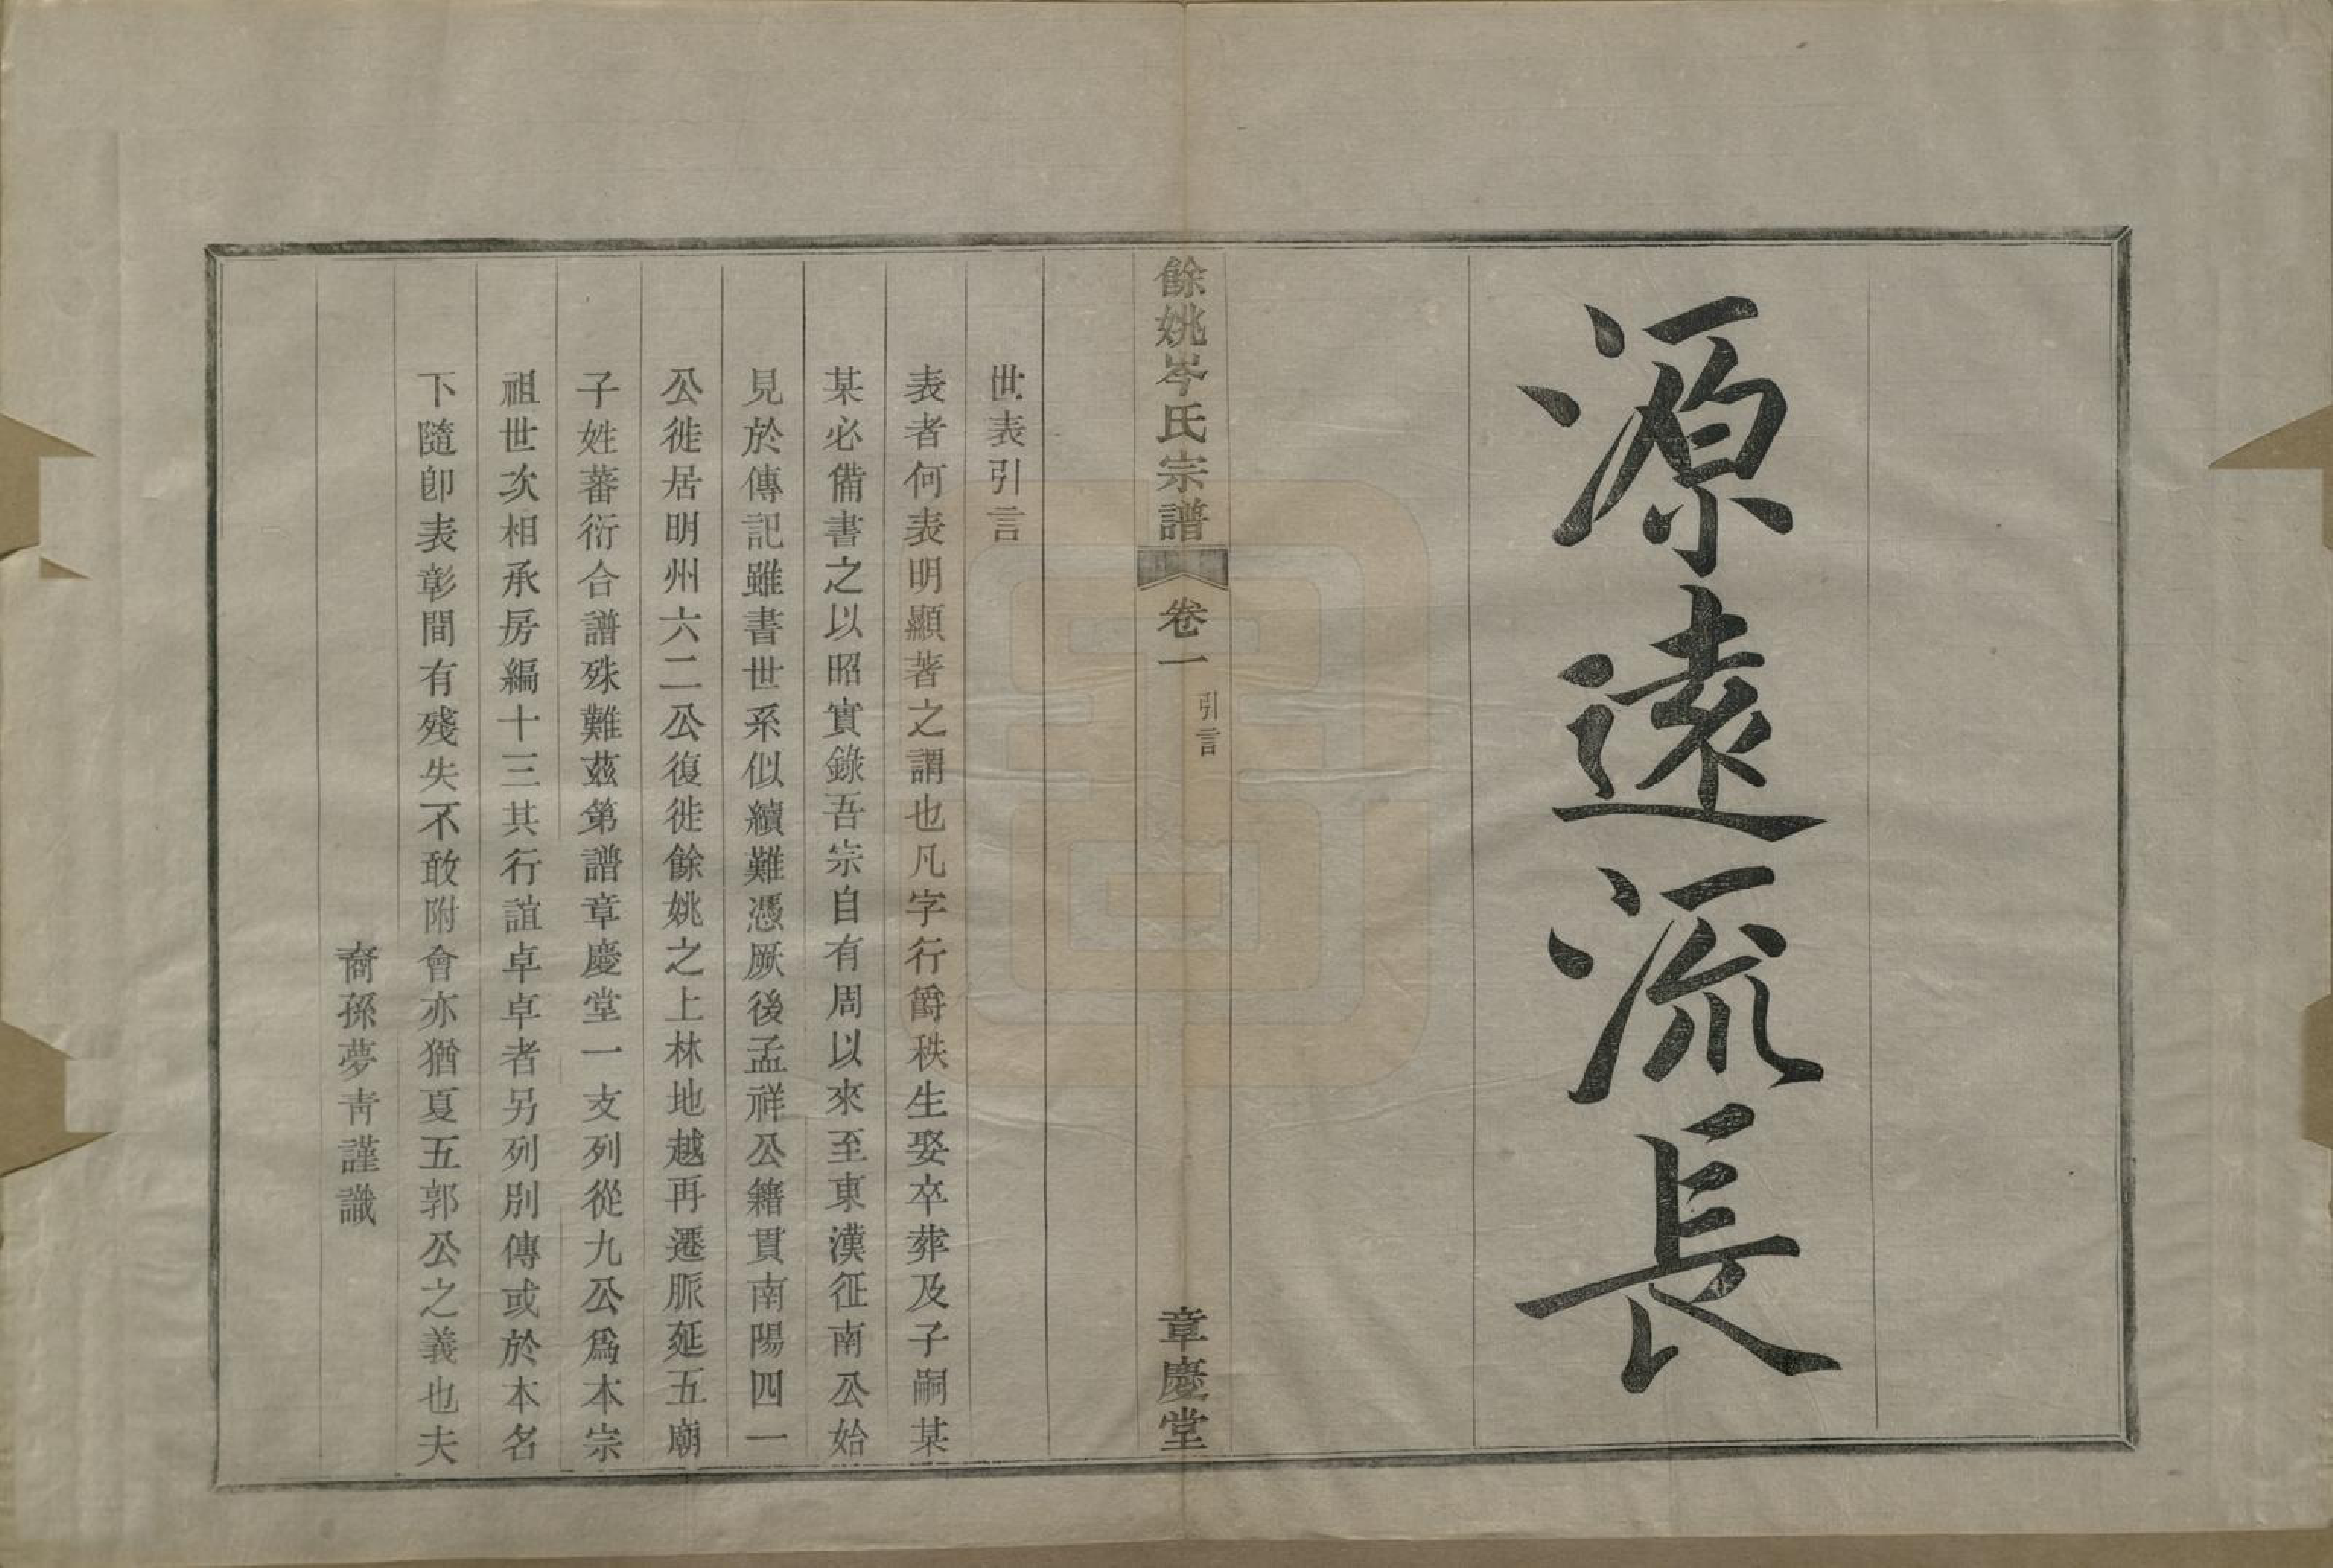 源遠流長
餘姚岑氏宗譜
卷一
引言
章慶堂
世表引言
表者何表明顯著之謂也凡字行爵秩生娶卒葬及子嗣某
某必備書之以昭實錄吾宗自有周以來至東漢征南公始
見於傳記雖書世系似續難憑厥後孟祥公籍貫南陽四一
公徙居明州六二公復徙餘姚之上林地越再遷脈延五廟
子姓蕃衍合譜殊難茲第譜章慶堂一支列從九公爲本宗
祖世次相承房編十三其行誼卓卓者另列別傳或於本名
下隨卽表彰間有殘失不敢附會亦猶夏五郭公之義也夫
裔孫夢靑謹識